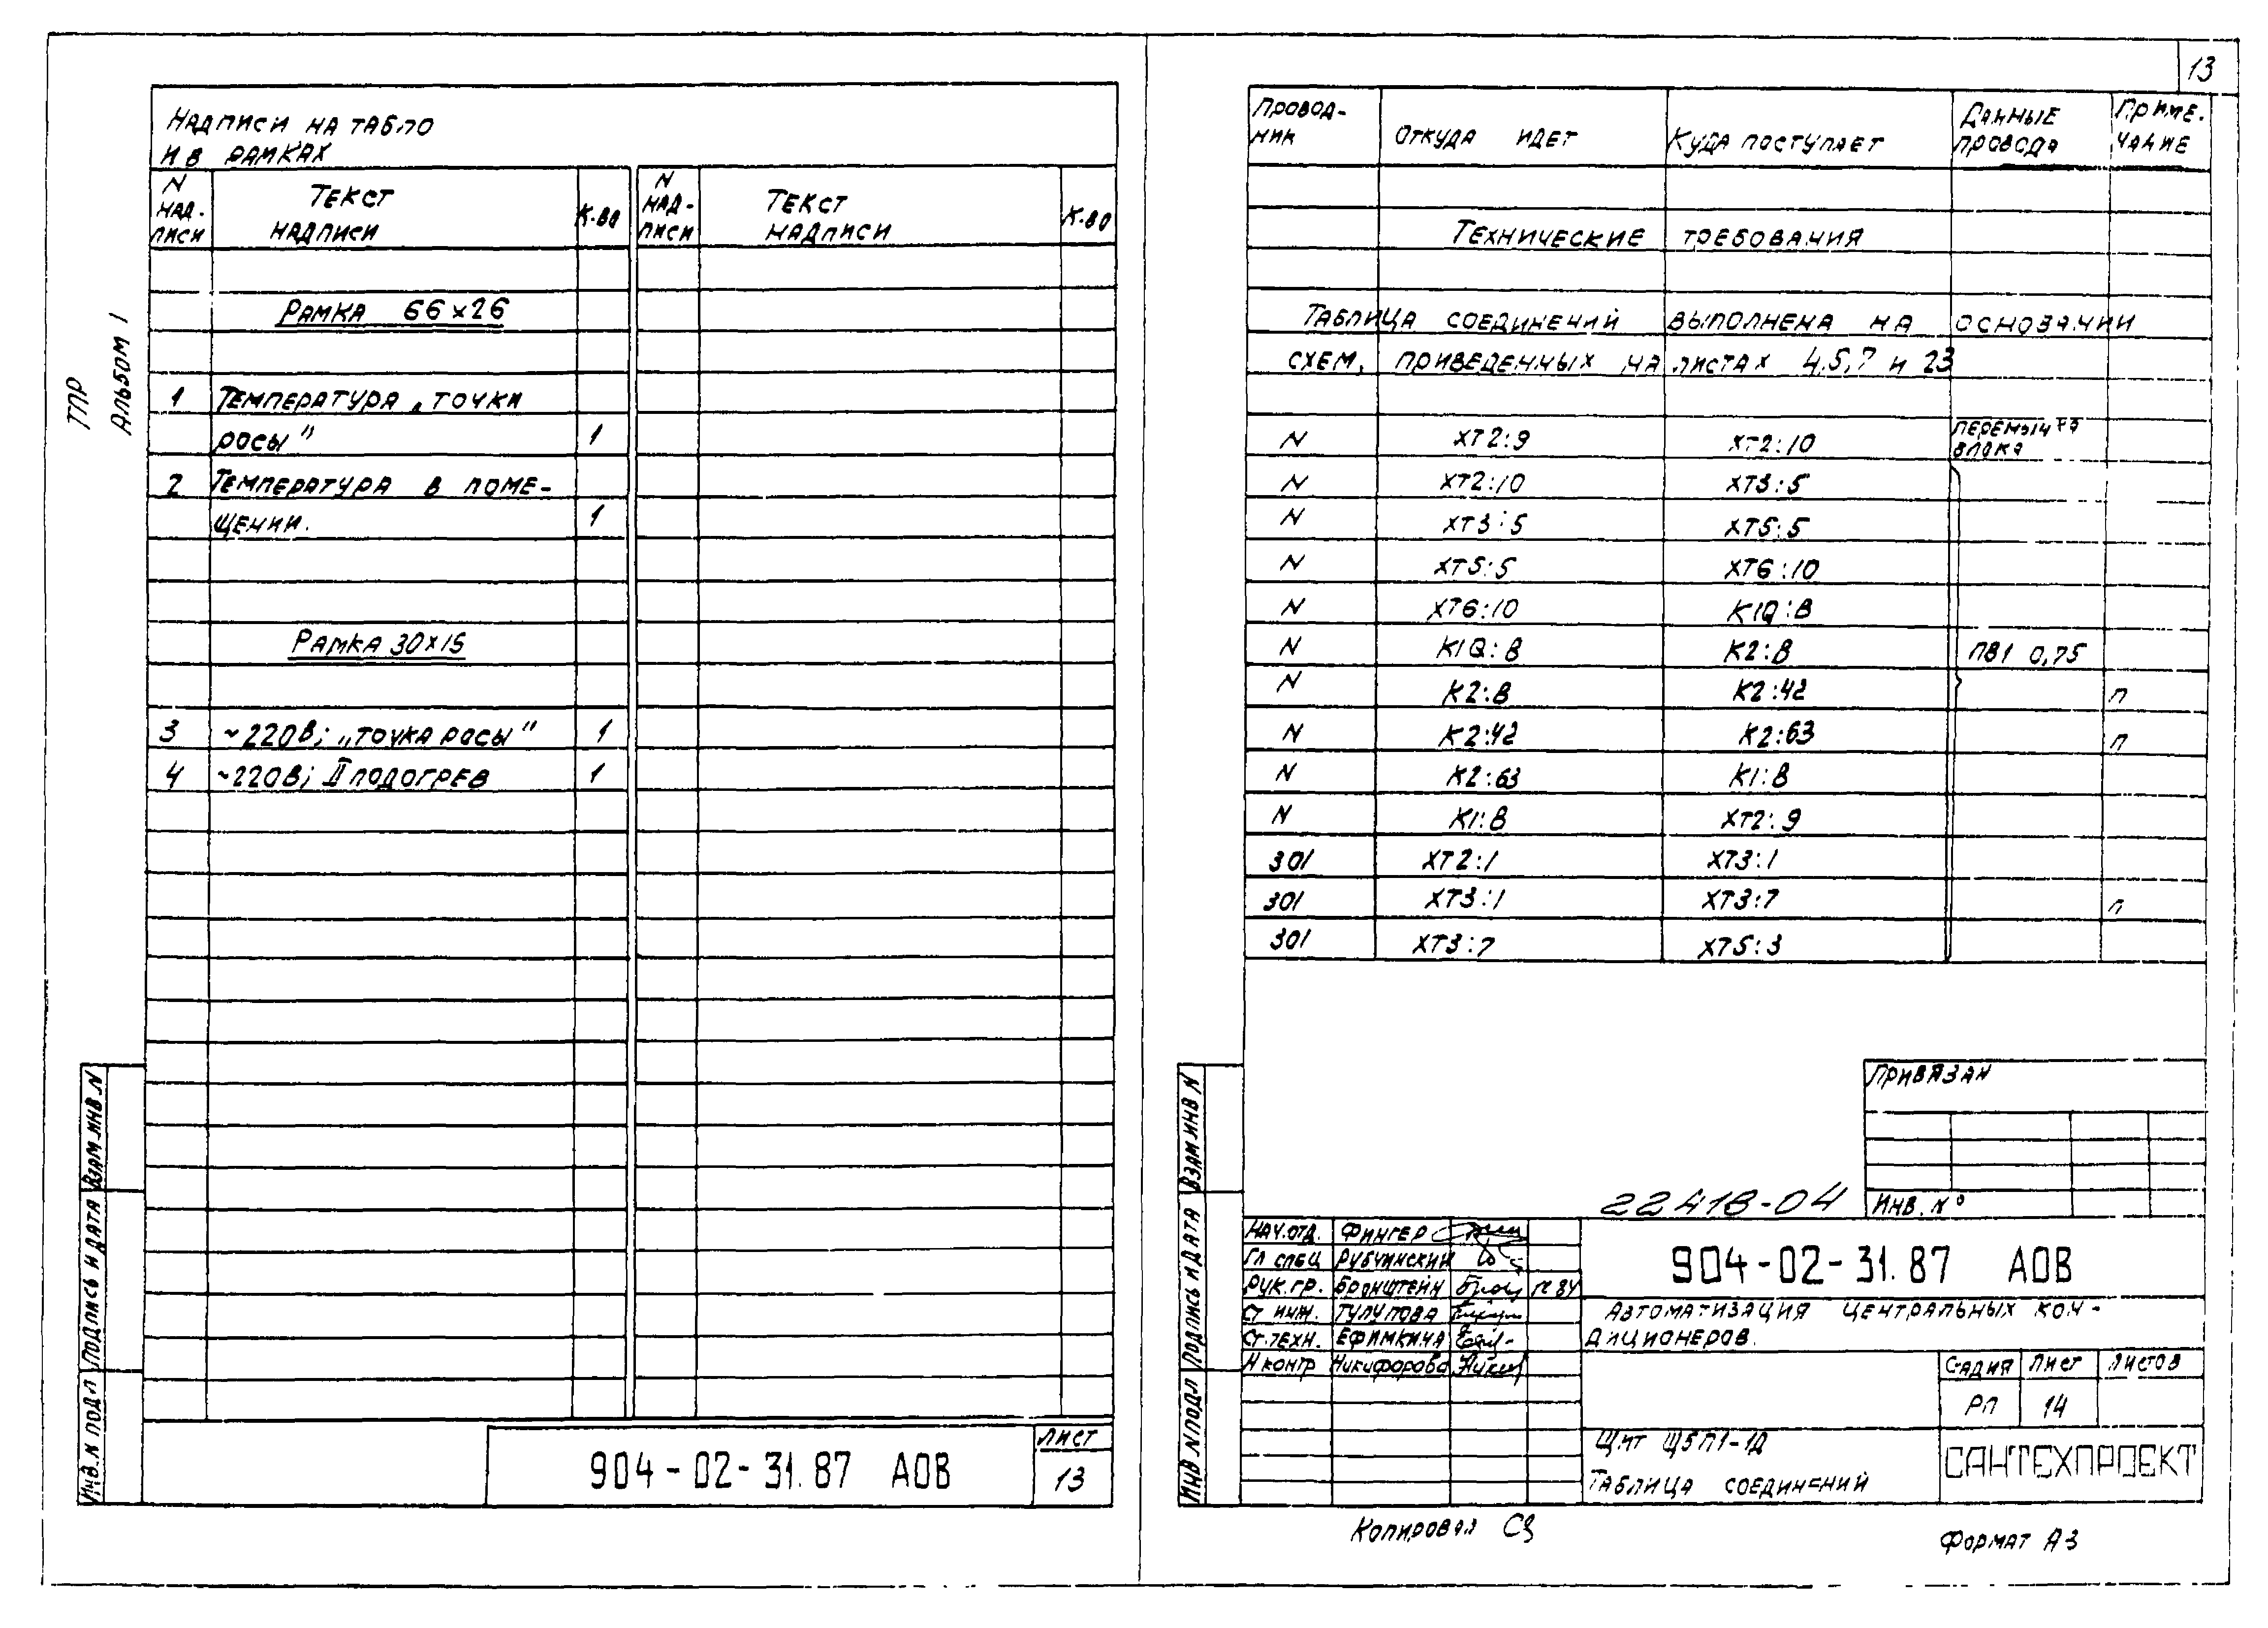 13
ТПР
Альбом 1
Надписи на табло
и в рамках
N надписи Текст надписи К-во N надписи Текст надписи К-во
Рамка 66×26
1 Температура „точки
росы" 1
2 Температура в поме-
щении. 1
Рамка 30×15
3 ~220В; „точка росы" 1
4 ~220В; II подогрев 1
904-02-31.87 АОВ
Лист
13
Инв. N подл Подпись и дата Взам.инв N
Провод-
ник Откуда идет Куда поступает Данные провода Приме-
чание
Технические требования
Таблица соединений выполнена на основании
схем, приведенных на листах 4,5,7 и 23
N ХТ2:9 ХТ2:10 перемычка
N ХТ2:10 ХТ3:5
N ХТ3:5 ХТ5:5
N ХТ5:5 ХТ6:10
N ХТ6:10 К1Q:В
N К1Q:В К2:В ПВ1 0,75
N К2:В К2:42 п
N К2:42 К2:63 п
N К2:63 К1:В
N К1:В ХТ2:9
301 ХТ2:1 ХТ3:1
301 ХТ3:1 ХТ3:7 п
301 ХТ3:7 ХТ5:3
Привязан
Инв. №
22418-04
Инв N подл Подпись и дата Взам инв N
Нач.отд. Фингер
Гл спец Рубчинский
Рук.гр. Бронштейн
Ст инж. Тулупова
Ст.техн. Ефимкина
Н контр Никифорова
904-02-31.87 АОВ
Автоматизация центральных кон-
диционеров.
Стадия Лист Листов
РП 14
Щит Щ5П1-1Д
Таблица соединений
САНТЕХПРОЕКТ
Копировал
Формат А3